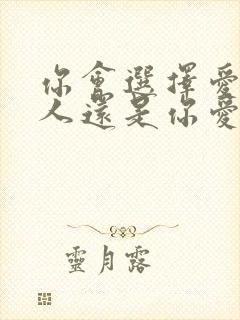 你會選擇愛
人還是你愛
靈月露